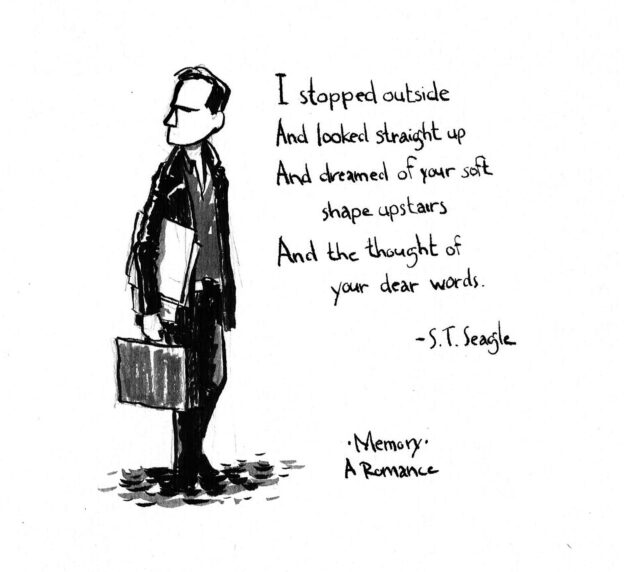 I stopped outside
And looked straight up
And dreamed of your soft
shape upstairs
And the thought of
your dear words.
-S.T. Seagle
·Memory·
A Romance